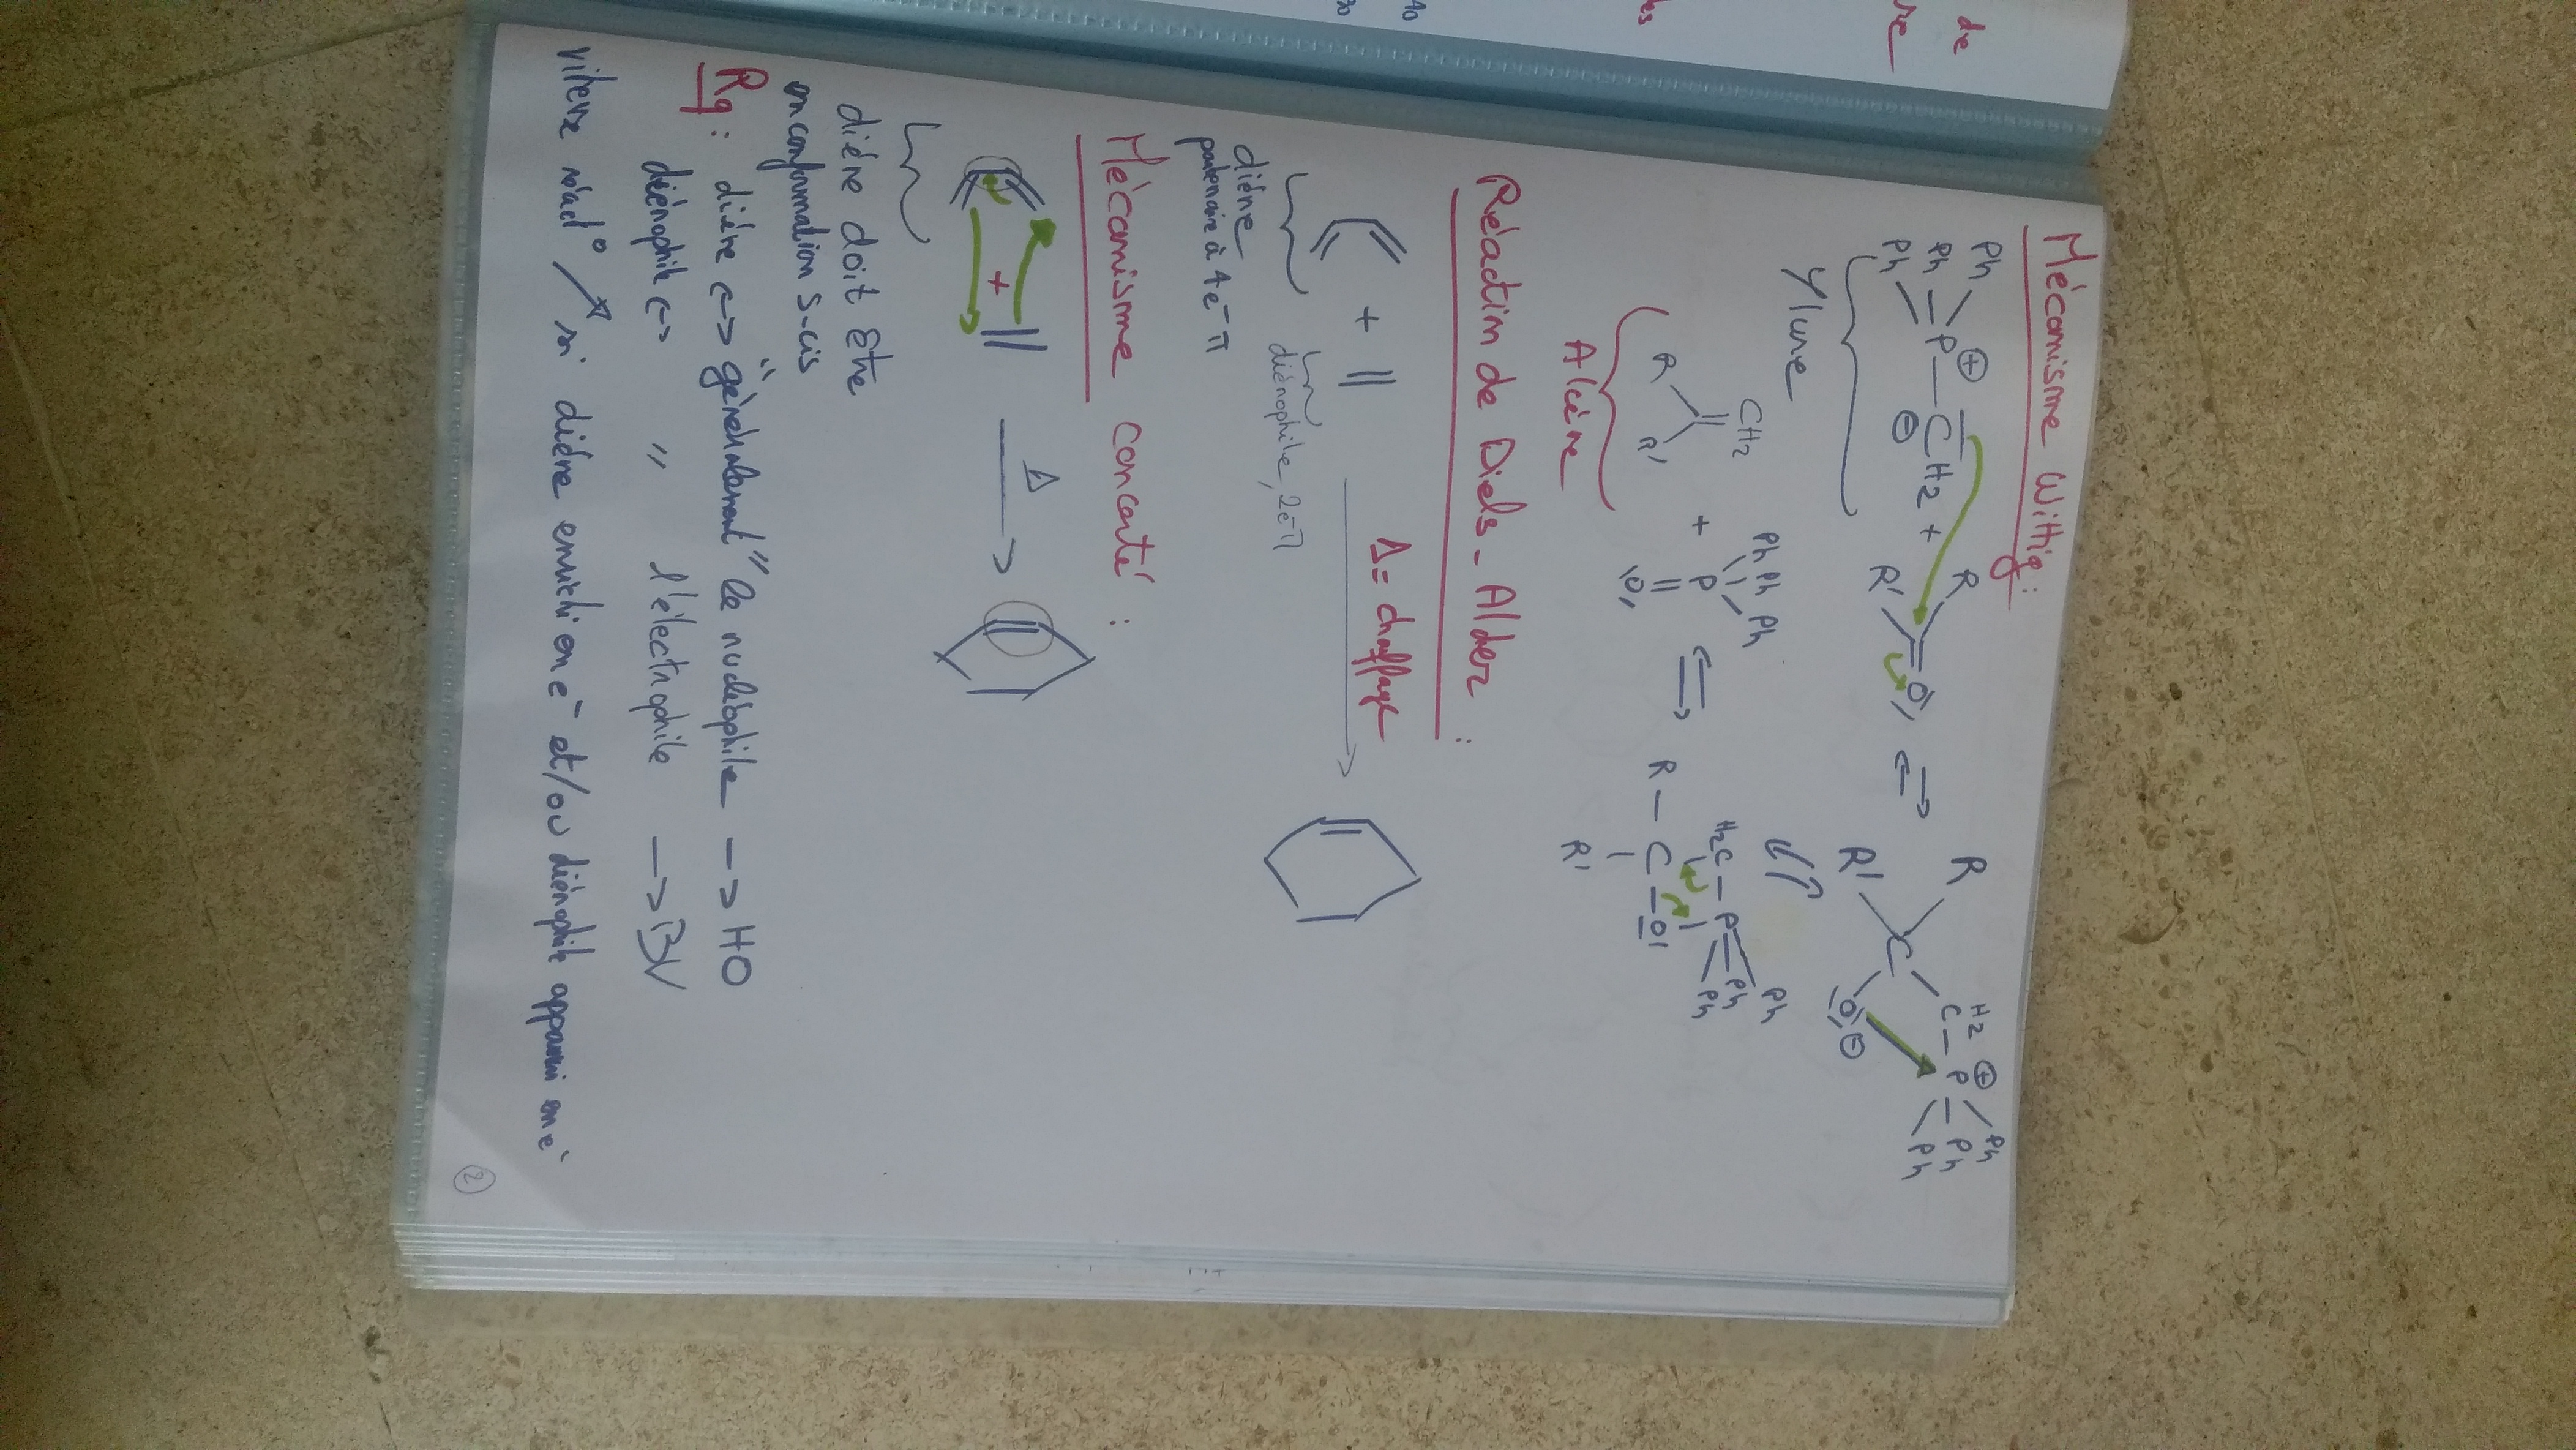 de
re
es
40
30
Mécanisme Wittig :
Ph Ph Ph P ⊕ — CH2 ⊖ + R R' O ⇌ R R' C H2 C — P ⊕ Ph Ph Ph O ⊖
Ylure
CH2 R R' + Ph Ph Ph P = O ⇌ R — C — O R' H2C — P Ph Ph Ph
Alcène
Réaction de Diels-Alder :
Δ = chauffage
+
diène
partenaire à 4e⁻ π
diénophile, 2e⁻π
Mécanisme concerté :
+ Δ
diène doit être
en conformation s-cis
Rq : diène <-> "généralement" le nucléophile —> HO
diénophile <-> " l'électrophile —> BV
vitesse réact° ↗ si diène enrichi en e⁻ et/ou diénophile appauvri en e⁻
2